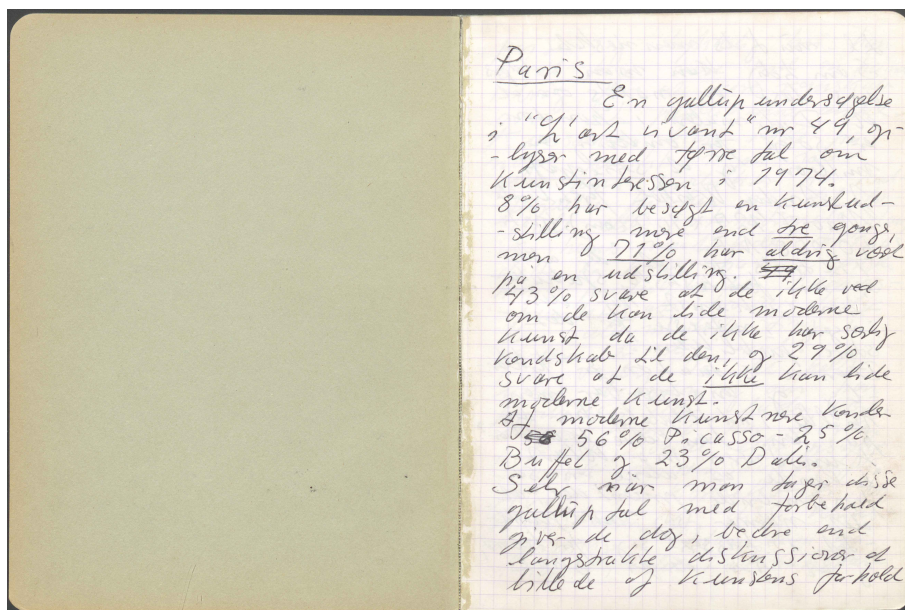 Paris
En gallupundersøgelse
i "L'art vivant" nr 49, op-
-lyser med tørre tal om
Kunstinteressen i 1974.
8% har besøgt en Kunstud-
-stilling mere end tre gange,
men 71% har aldrig været
på en udstilling.
43% svare at de ikke ved
om de kan lide moderne
Kunst da de ikke har særlig
kendskab til den, og 29%
svare at de ikke kan lide
moderne Kunst.
Af moderne Kunstnere kender
56% Picasso - 25%
Buffet og 23% Dali.
Selv når man tager disse
gallup tal med forbehold
giver de dog, bedre end
langstrakte diskussioner et
billede af Kunstens forhold